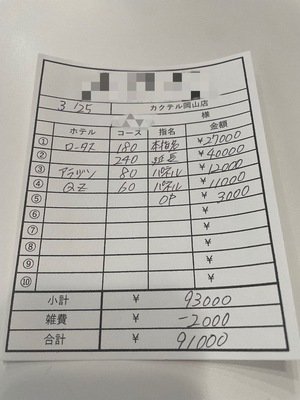 3/25 カクテル岡山店
様
ホテル コース 指名 金額
① ロータス 180 本指名 ¥27000
② 240 延長 ¥40000
③ アラジン 80 パネル ¥12000
④ QZ 60 パネル ¥11000
⑤ OP ¥3000
⑥ ¥
⑦ ¥
⑧ ¥
⑨ ¥
⑩ ¥
小計 ¥ 93000
雑費 ¥ -2000
合計 ¥ 91000